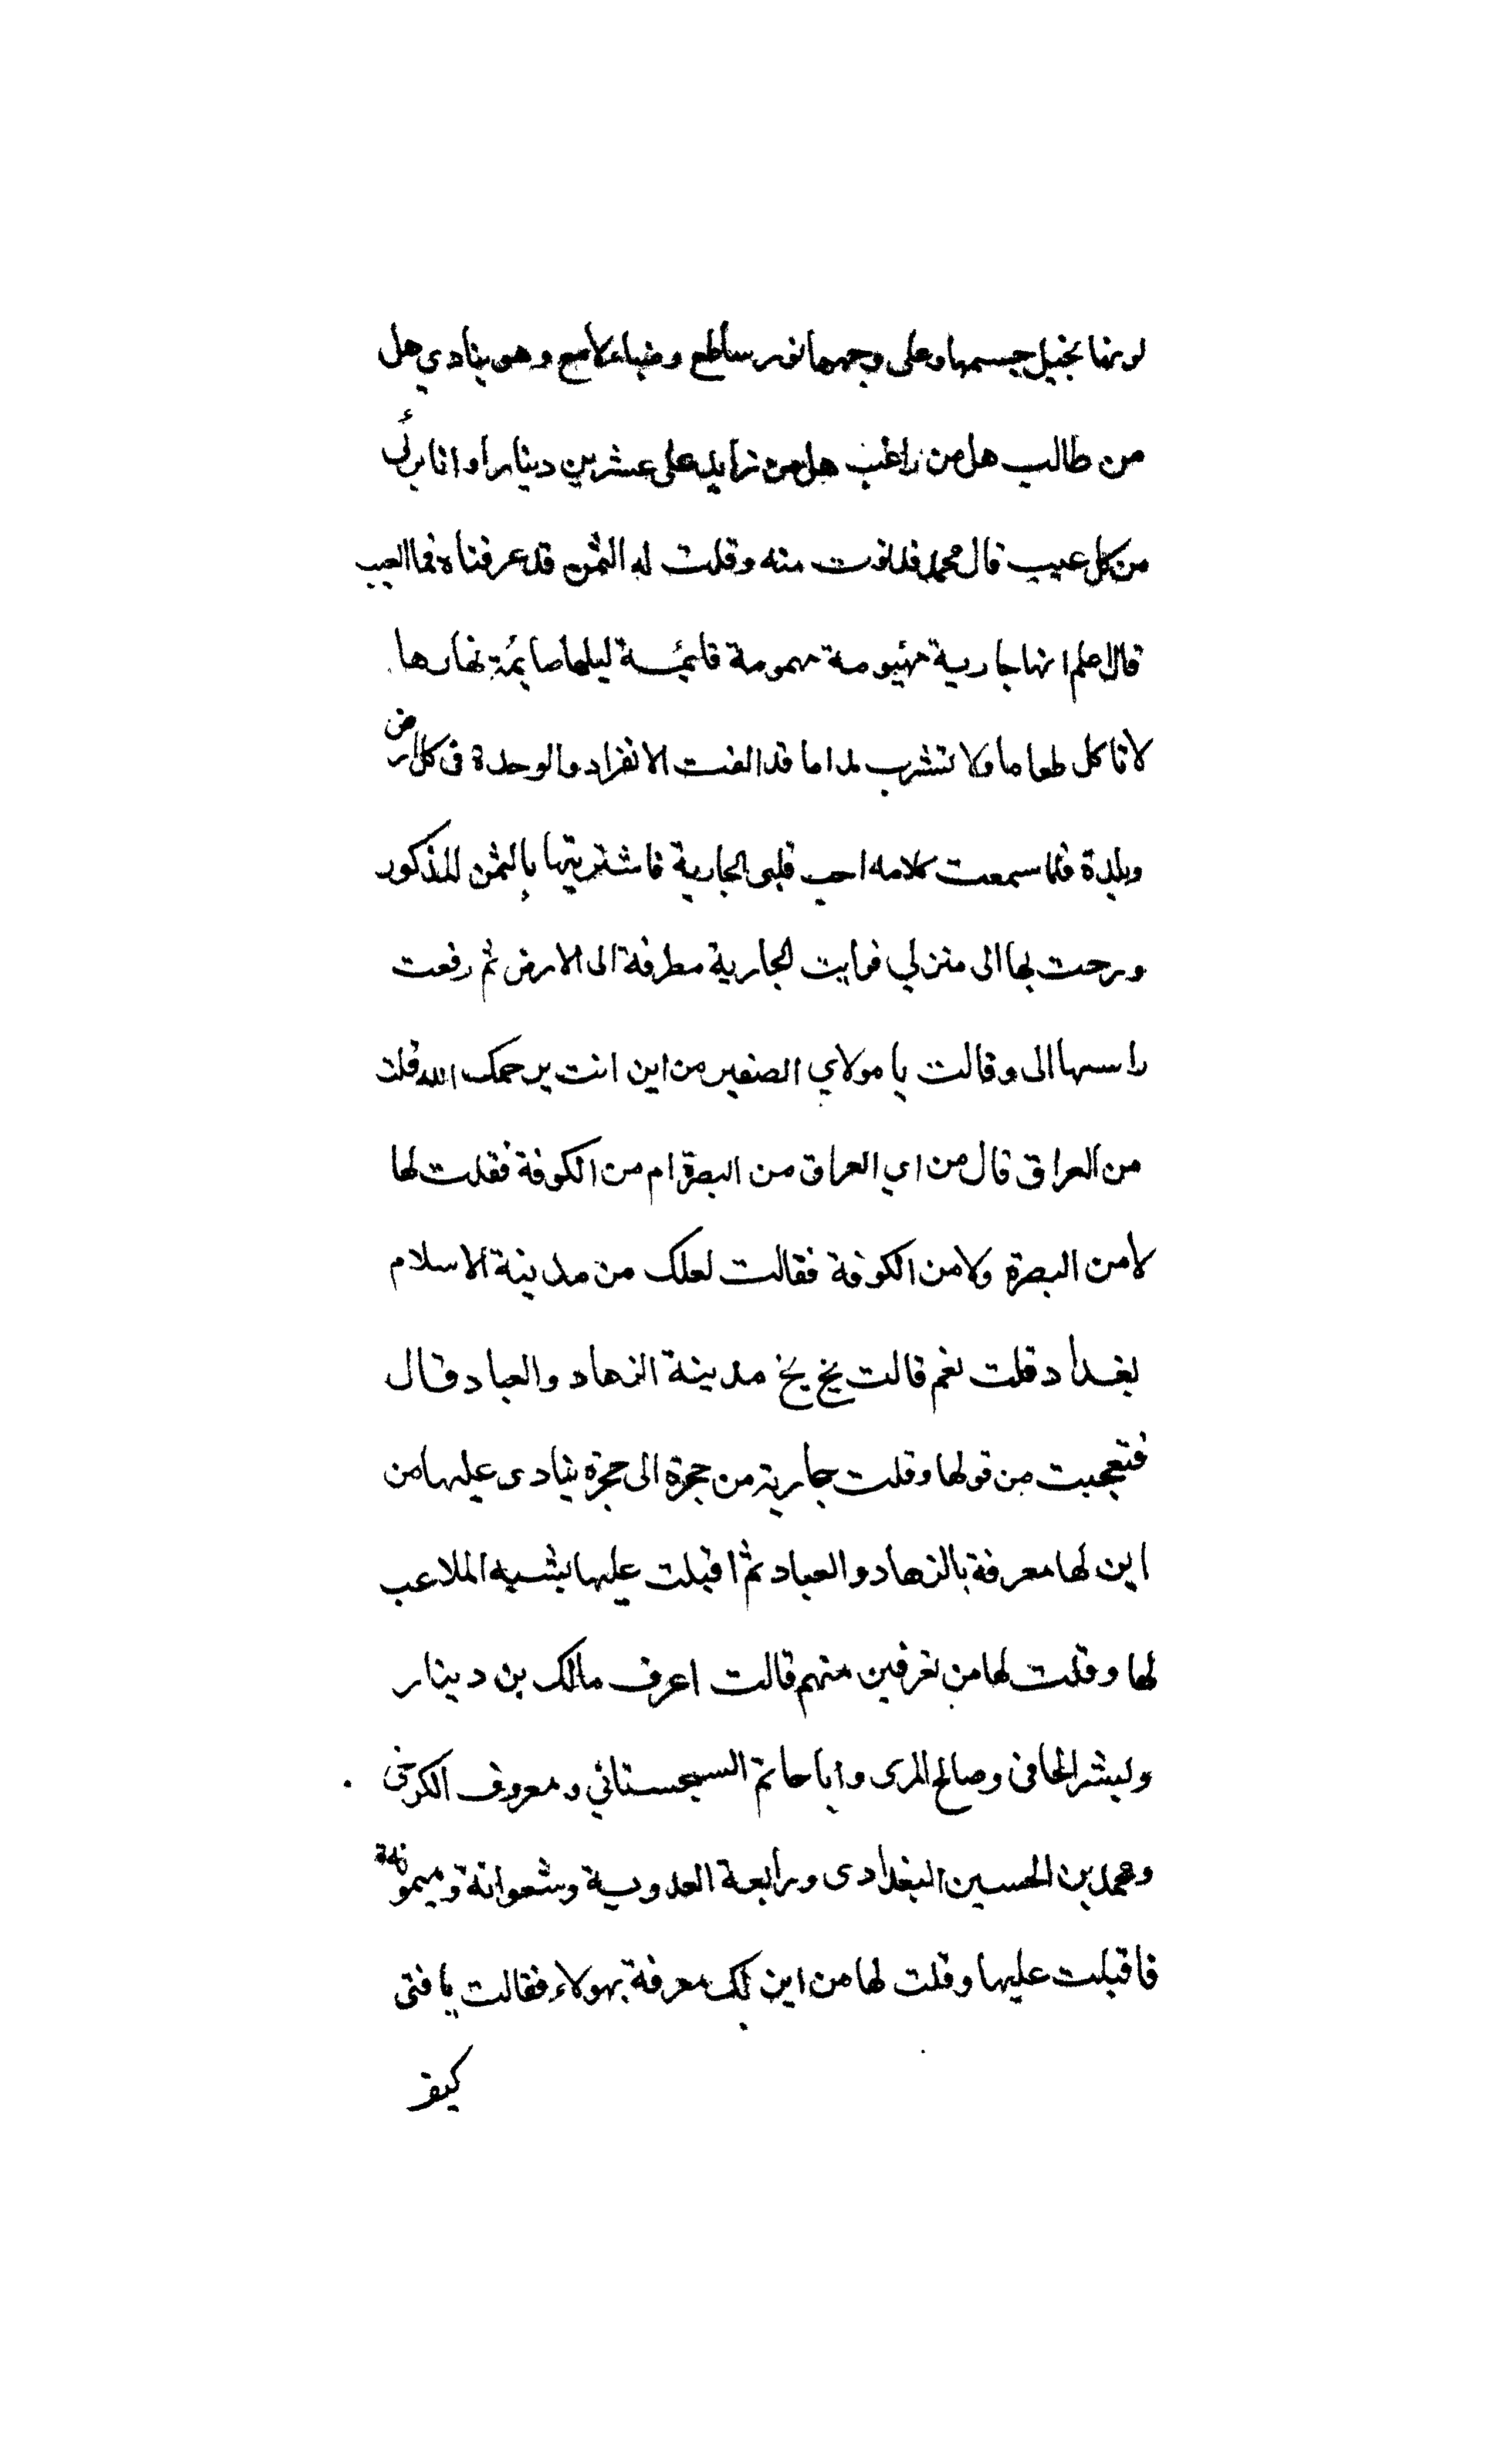 لونها نحيل جسمها وعلى وجهها نور ساطع وضياء لامع وهو ينادي هل
من طالب هل من راغب هل من زايد على عشرين دينارا وانا برئ
من كل عيب قال محمد فدنوت منه وقلت له الثمن قد عرفناه فما العيب
قال اعلم انها جارية مهمومة قايمة ليلها صايمة نهارها
لا تاكل طعاما ولا تشرب مداما قد الفت الانفراد والوحدة في كل ارض
وبلدة فلما سمعت كلامه احب قلبى الجارية فاشتريتها بالثمن المذكور
ورحت بها الى منزلي فرايت الجارية مطرفة الى الارض ثم رفعت
راسها الى وقالت يا مولاي الصغير من اين انت يرحمك الله قلت
من العراق قال من اي العراق من البصرة ام من الكوفة فقلت لها
لا من البصرة ولا من الكوفة فقالت لعلك من مدينة الاسلام
بغداد قلت نعم قالت بخ بخ مدينة الزهاد والعباد قال
فتعجبت من قولها وقلت جارية من حجرة الى حجرة ينادى عليها من
اين لها معرفة بالزهاد والعباد ثم اقبلت عليها بشبه الملاعب
لها وقلت لها من تعرفين منهم قالت اعرف مالك بن دينار
وبشر الحافى وصالح المرى وابا حاتم السجستاني ومعروف الكرخى
ومحمد بن الحسين البغدادى ورابعة العدوية وشعوانة وميمونة
فاقبلت عليها وقلت لها من اين لك معرفة بهولاء فقالت يا فتى
كيف